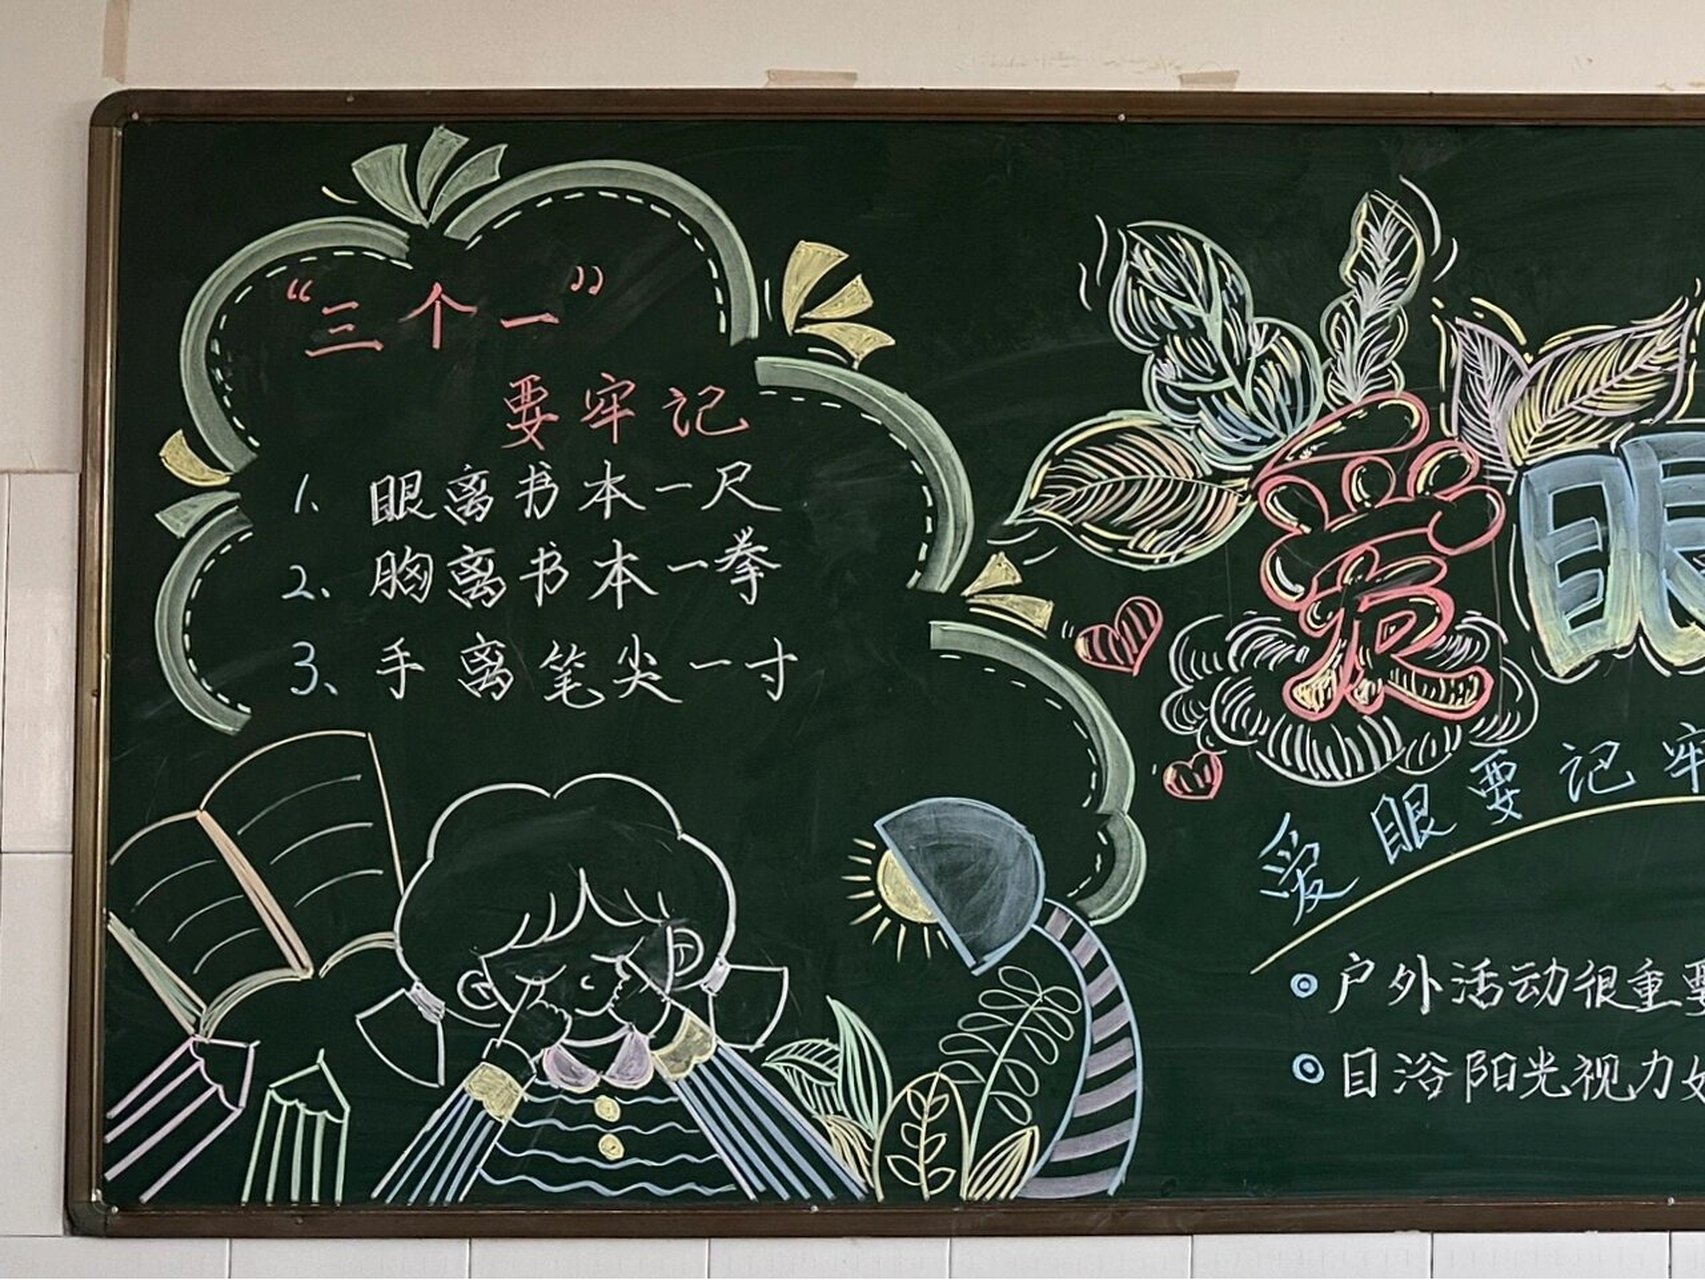 “三个一”
要牢记
1. 眼离书本一尺
2. 胸离书本一拳
3、手离笔尖一寸
爱眼
爱眼要记牢
户外活动很重要
目浴阳光视力好